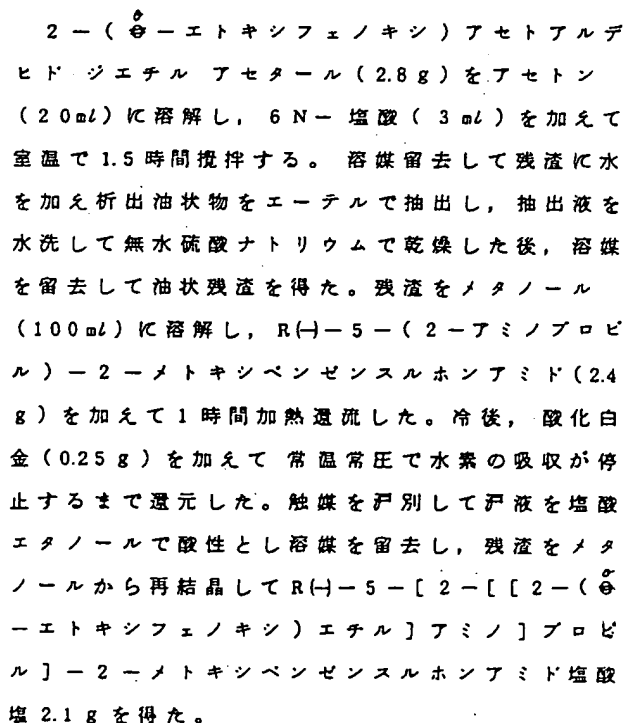 2－(o－エトキシフェノキシ)アセトアルデ
ヒド ジエチル アセタール(2.8g)をアセトン
(20ml)に溶解し，6N－塩酸(3ml)を加えて
室温で1.5時間攪拌する。溶媒留去して残渣に水
を加え析出油状物をエーテルで抽出し，抽出液を
水洗して無水硫酸ナトリウムで乾燥した後，溶媒
を留去して油状残渣を得た。残渣をメタノール
(100ml)に溶解し，R(−)－5－(2－アミノプロピ
ル)－2－メトキシベンゼンスルホンアミド(2.4
g)を加えて1時間加熱還流した。冷後，酸化白
金(0.25g)を加えて 常温常圧で水素の吸収が停
止するまで還元した。触媒を戸別して戸液を塩酸
エタノールで酸性とし溶媒を留去し，残渣をメタ
ノールから再結晶してR(−)－5－[2－[[2－(o
－エトキシフェノキシ)エチル]アミノ]プロピ
ル]－2－メトキシベンゼンスルホンアミド塩酸
塩2.1gを得た。